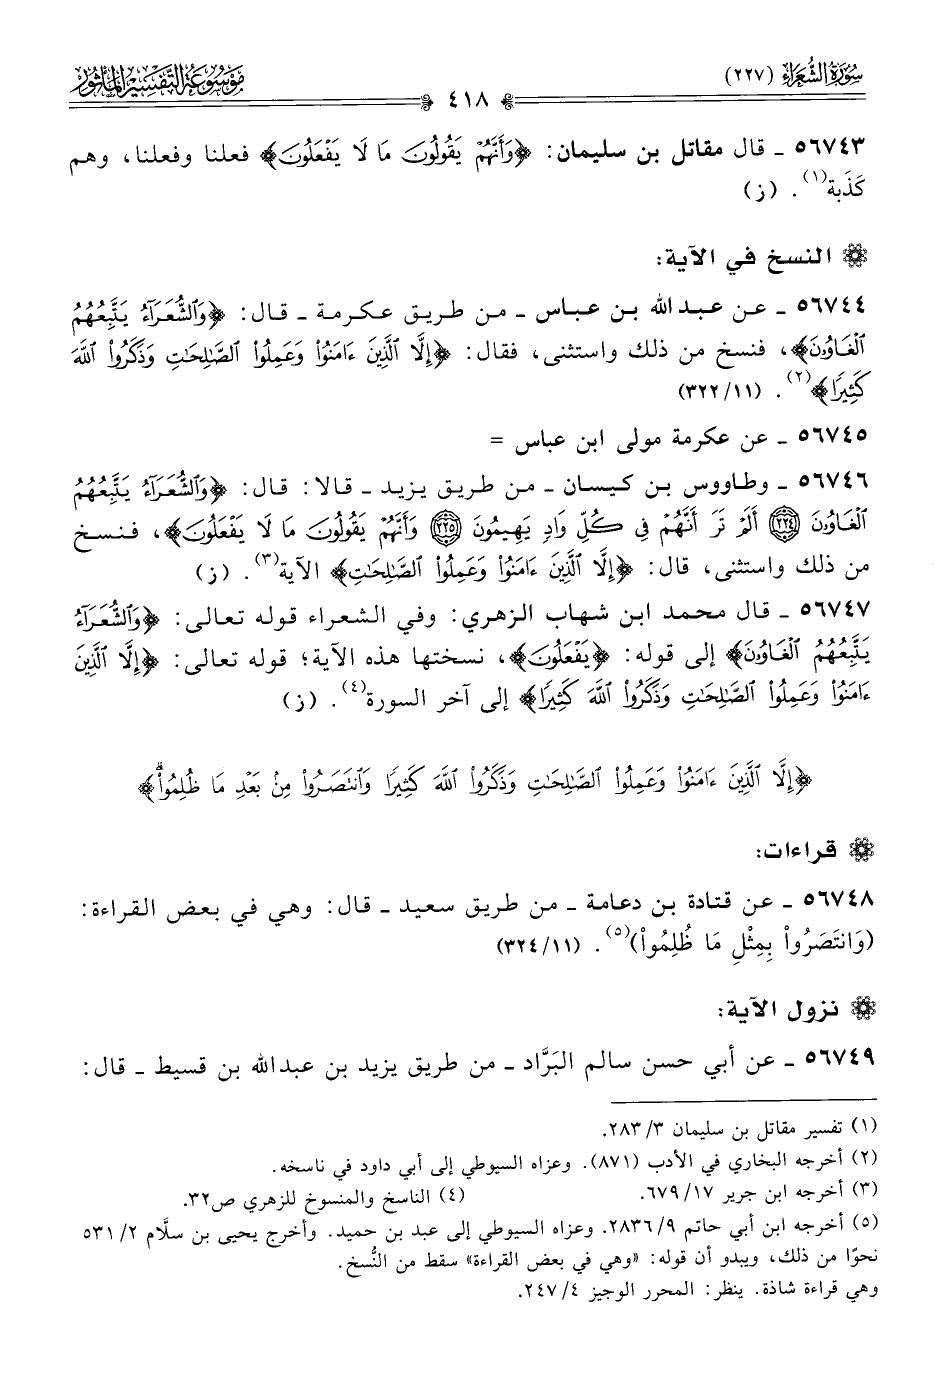 سُورَةُ الشُّعَرَاءِ (٢٢٧)
مَوْسُوعَة التَّفْسِيرِ المَأْثُور
٤١٨
٥٦٧٤٣ ـ قال مقاتل بن سليمان: ﴿وَأَنَّهُمْ يَقُولُونَ مَا لَا يَفْعَلُونَ﴾ فعلنا وفعلنا، وهم
كَذَبة(١). (ز)
النسخ في الآية:
٥٦٧٤٤ ـ عن عبد الله بن عباس ـ من طريق عكرمة ـ قال: ﴿وَٱلشُّعَرَآءُ يَتَّبِعُهُمُ
ٱلْغَاوُۥنَ﴾، فنسخ من ذلك واستثنى، فقال: ﴿إِلَّا ٱلَّذِينَ ءَامَنُوا۟ وَعَمِلُوا۟ ٱلصَّـٰلِحَـٰتِ وَذَكَرُوا۟ ٱللَّهَ
كَثِيرًا﴾(٢). (٣٢٢/١١)
٥٦٧٤٥ ـ عن عكرمة مولى ابن عباس =
٥٦٧٤٦ ـ وطاووس بن كيسان ـ من طريق يزيد ـ قالا: قال: ﴿وَٱلشُّعَرَآءُ يَتَّبِعُهُمُ
ٱلْغَاوُۥنَ ٢٢٤ أَلَمْ تَرَ أَنَّهُمْ فِى كُلِّ وَادٍ يَهِيمُونَ ٢٢٥ وَأَنَّهُمْ يَقُولُونَ مَا لَا يَفْعَلُونَ﴾، فنسخ
من ذلك واستثنى، قال: ﴿إِلَّا ٱلَّذِينَ ءَامَنُوا۟ وَعَمِلُوا۟ ٱلصَّـٰلِحَـٰتِ﴾ الآية(٣). (ز)
٥٦٧٤٧ ـ قال محمد ابن شهاب الزهري: وفي الشعراء قوله تعالى: ﴿وَٱلشُّعَرَآءُ
يَتَّبِعُهُمُ ٱلْغَاوُۥنَ﴾ إلى قوله: ﴿يَفْعَلُونَ﴾، نسختها هذه الآية؛ قوله تعالى: ﴿إِلَّا ٱلَّذِينَ
ءَامَنُوا۟ وَعَمِلُوا۟ ٱلصَّـٰلِحَـٰتِ وَذَكَرُوا۟ ٱللَّهَ كَثِيرًا﴾ إلى آخر السورة(٤). (ز)
﴿إِلَّا ٱلَّذِينَ ءَامَنُوا۟ وَعَمِلُوا۟ ٱلصَّـٰلِحَـٰتِ وَذَكَرُوا۟ ٱللَّهَ كَثِيرًا وَٱنتَصَرُوا۟ مِنۢ بَعْدِ مَا ظُلِمُوا۟ۗ﴾
قراءات:
٥٦٧٤٨ ـ عن قتادة بن دعامة ـ من طريق سعيد ـ قال: وهي في بعض القراءة:
(وَانتَصَرُوا۟ بِمِثْلِ مَا ظُلِمُوا۟)(٥). (٣٢٤/١١)
نزول الآية:
٥٦٧٤٩ ـ عن أبي حسن سالم البَرَّاد ـ من طريق يزيد بن عبد الله بن قسيط ـ قال:
(١) تفسير مقاتل بن سليمان ٢٨٣/٣.
(٢) أخرجه البخاري في الأدب (٨٧١). وعزاه السيوطي إلى أبي داود في ناسخه.
(٣) أخرجه ابن جرير ٦٧٩/١٧. (٤) الناسخ والمنسوخ للزهري ص٣٢.
(٥) أخرجه ابن أبي حاتم ٢٨٣٦/٩. وعزاه السيوطي إلى عبد بن حميد. وأخرج يحيى بن سلَّام ٥٣١/٢
نحوًا من ذلك، ويبدو أن قوله: «وهي في بعض القراءة» سقط من النُّسخ.
وهي قراءة شاذة. ينظر: المحرر الوجيز ٢٤٧/٤.